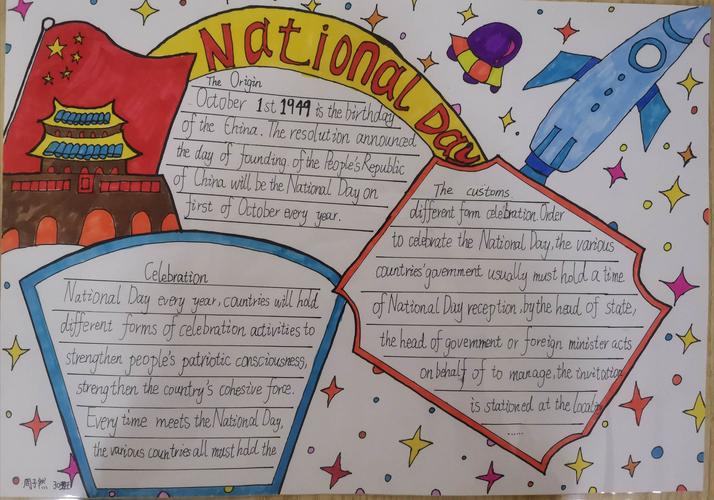 National Day
The Origin
October 1st 1949 is the birthday
of the China. The resolution announced
the day of founding of the People's Republic
of China will be the National Day on
first of October every year.
The customs
different fom celebration. Order
to celebrate the National Day, the various
countries'government usually must hold a time
of National Day reception, by the head of state,
the head of government or foreign minister acts
on behalf of to manage, the invitation
is stationed at the local
......
Celebration
National Day every year, countries will hold
different forms of celebration activities to
strengthen people's patriotic consciousness,
strengthen the country's cohesive force.
Every time meets the National Day,
the various countries all must hold the